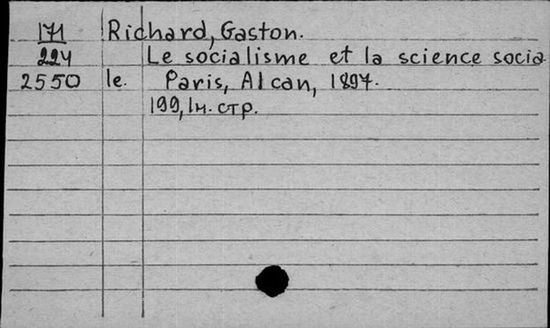 171 Richard, Gaston.
224 Le socialisme et la science socia
2550 le. Paris, Alcan, 1897.
199, 1н. стр.